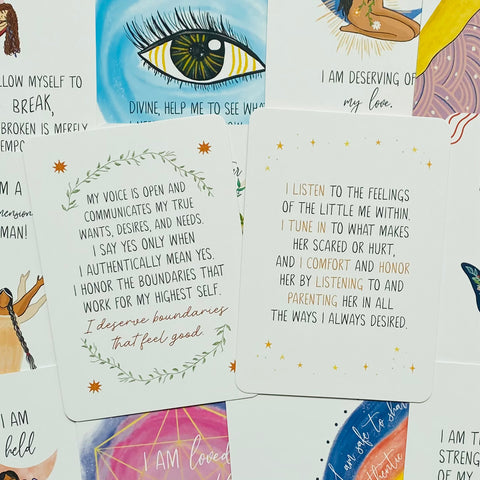 LLOW MYSELF TO
BREAK,
BROKEN IS MERELY
TEMPO
DIVINE, HELP ME TO SEE WHA
I AM DESERVING OF
my love.
MY VOICE IS OPEN AND
COMMUNICATES MY TRUE
WANTS, DESIRES, AND NEEDS.
I SAY YES ONLY WHEN
I AUTHENTICALLY MEAN YES.
I HONOR THE BOUNDARIES THAT
WORK FOR MY HIGHEST SELF.
I deserve boundaries
that feel good.
I LISTEN TO THE FEELINGS
OF THE LITTLE ME WITHIN.
I TUNE IN TO WHAT MAKES
HER SCARED OR HURT,
AND I COMFORT AND HONOR
HER BY LISTENING TO AND
PARENTING HER IN ALL
THE WAYS I ALWAYS DESIRED.
M A
mension
MAN!
I AM
held
I AM loved
I am safe to sha
I AM TH
STRENG
OF MY